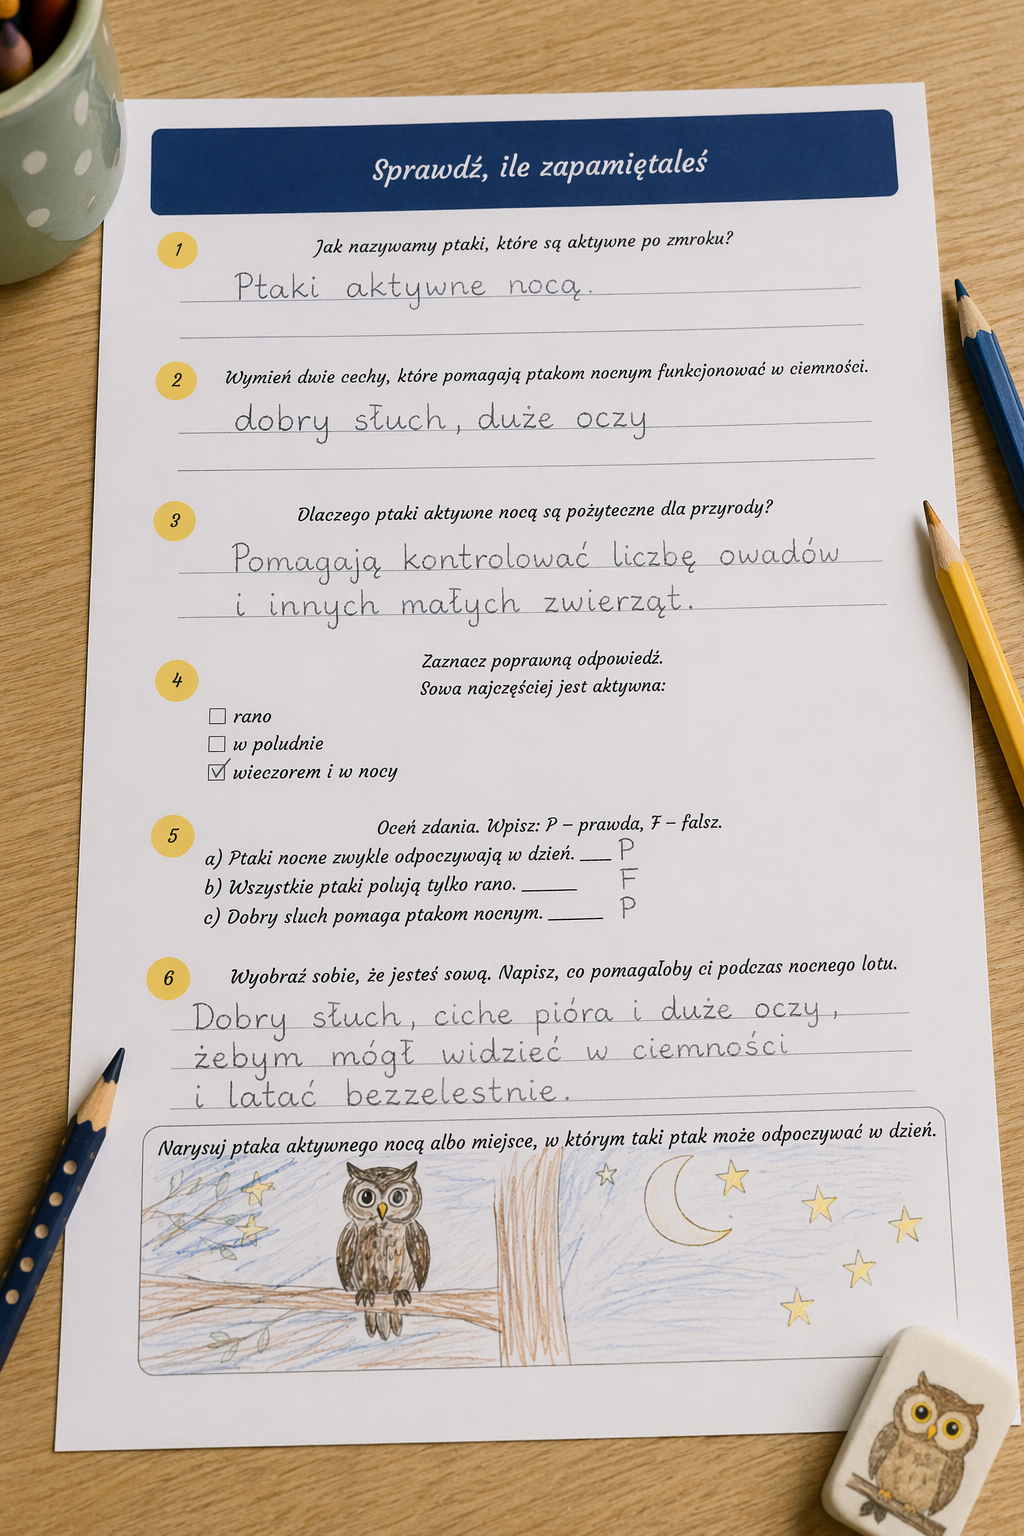 Sprawdź, ile zapamiętaleś
1
Jak nazywamy ptaki, które są aktywne po zmroku?
Ptaki aktywne nocą.
2
Wymień dwie cechy, które pomagają ptakom nocnym funkcjonować w ciemności.
dobry słuch, duże oczy
3
Dlaczego ptaki aktywne nocą są pożyteczne dla przyrody?
Pomagają kontrolować liczbę owadów
i innych małych zwierząt.
4
Zaznacz poprawną odpowiedź.
Sowa najczęściej jest aktywna:
rano
w poludnie
wieczorem i w nocy
5
Oceń zdania. Wpisz: P – prawda, F – falsz.
a) Ptaki nocne zwykle odpoczywają w dzień. ___ P
b) Wszystkie ptaki polują tylko rano. _____ F
c) Dobry sluch pomaga ptakom nocnym. _____ P
6
Wyobraź sobie, że jesteś sową. Napisz, co pomagałoby ci podczas nocnego lotu.
Dobry słuch, ciche pióra i duże oczy,
żebym mógł widzieć w ciemności
i latać bezzelestnie.
Narysuj ptaka aktywnego nocą albo miejsce, w którym taki ptak może odpoczywać w dzień.